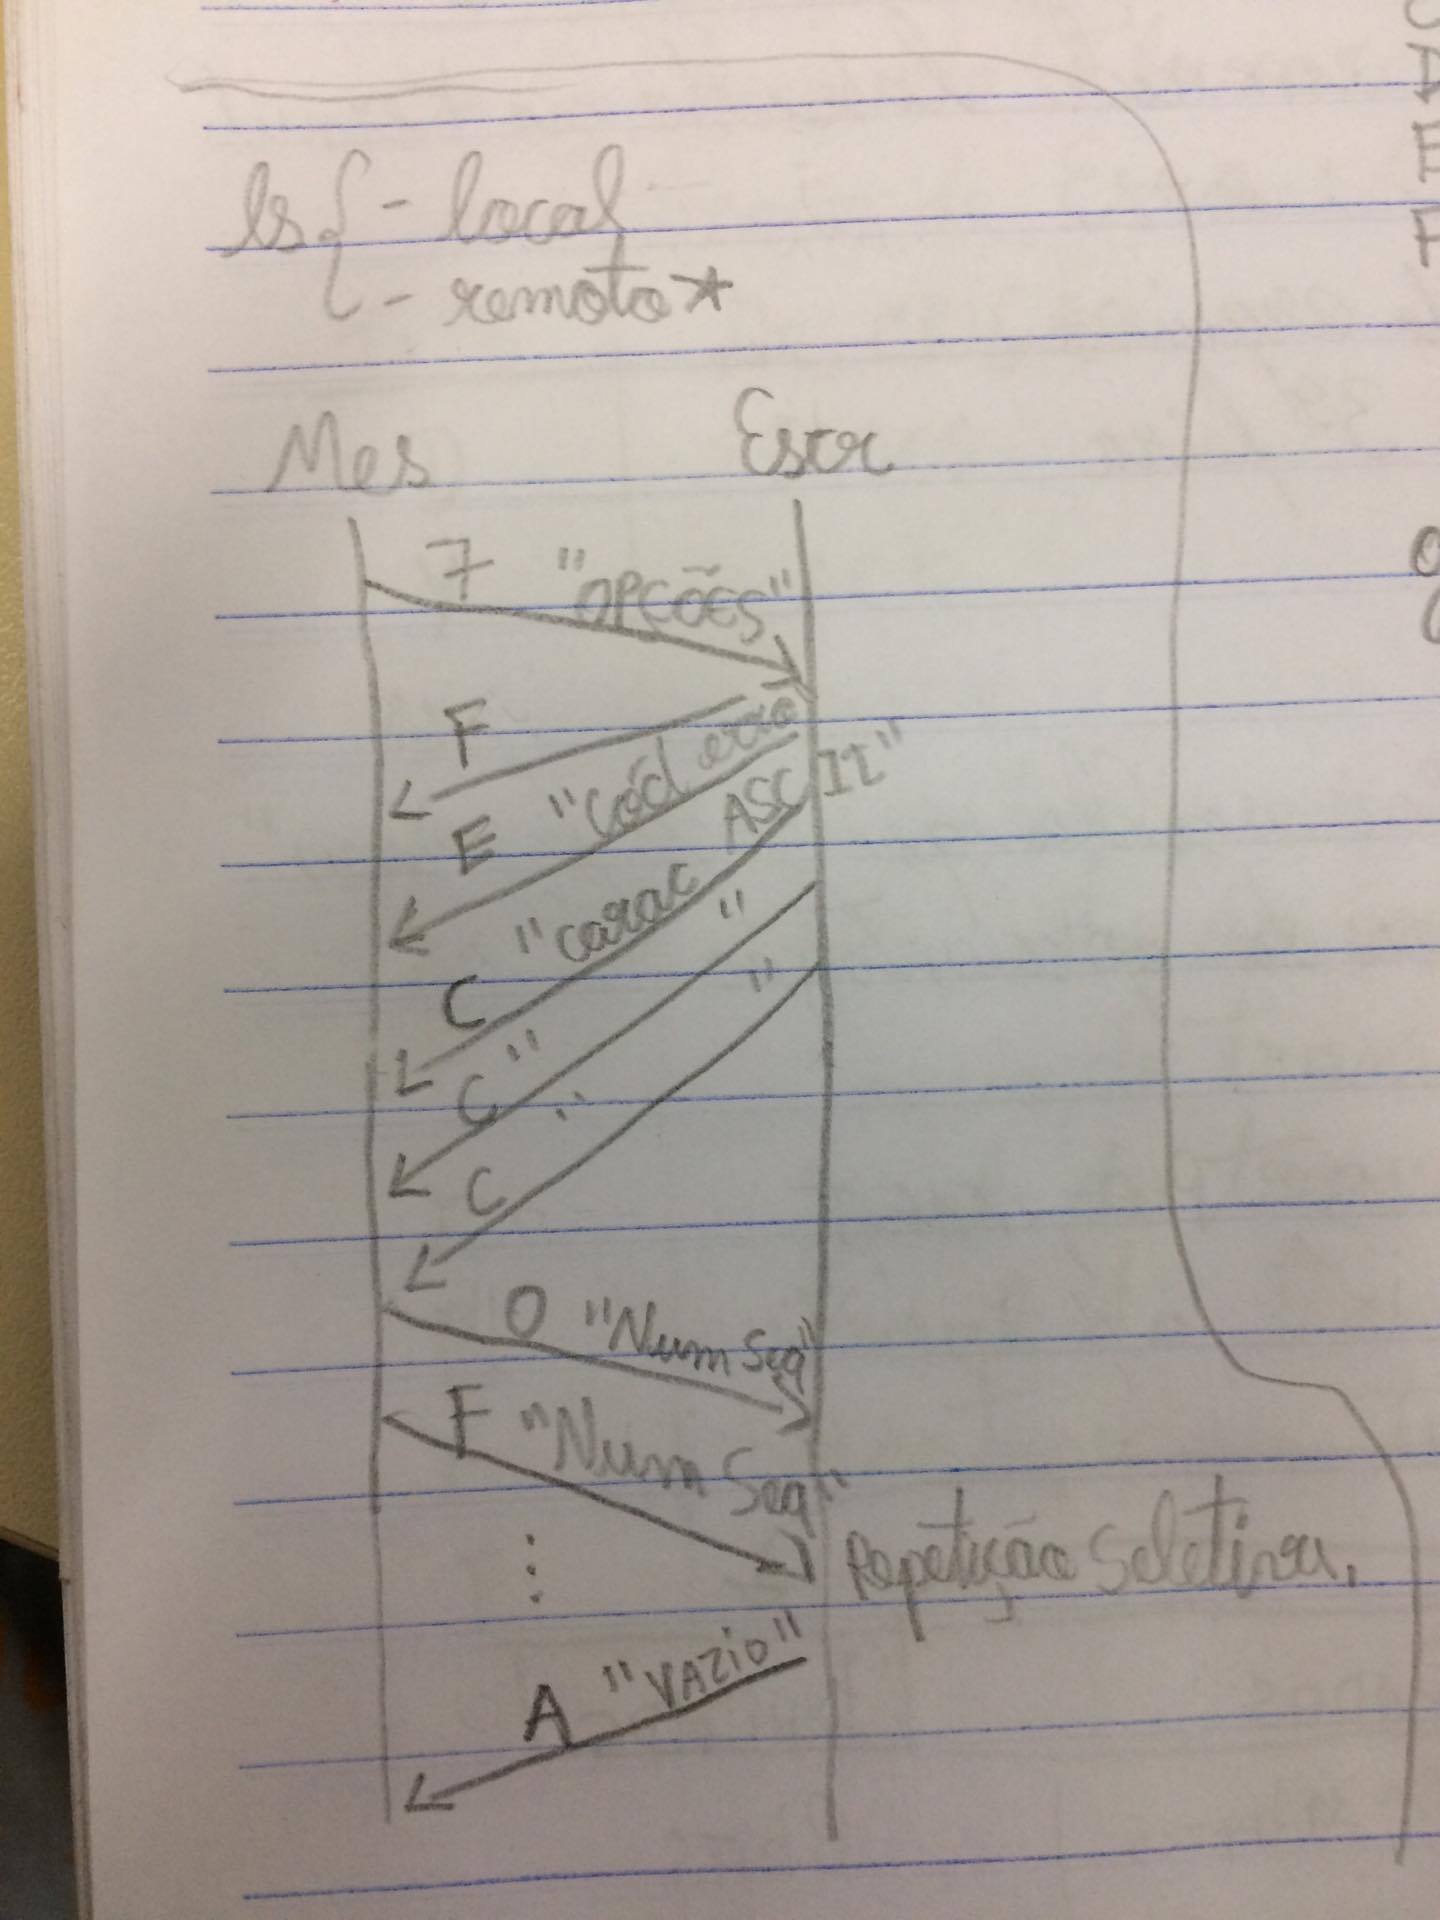 ls { - local
- remoto *
Mes Escr
7 "OPÇÕES"
F
E "cód erro"
C "carac ASCII"
C " "
C " "
0 "Num Seq"
F "Num Seq"
⋮
Repetição Seletiva.
A "VAZIO"
D
E
F